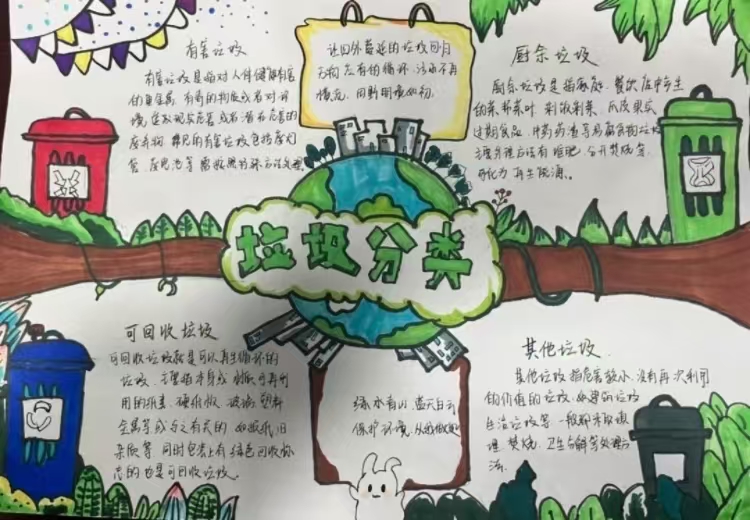 有害垃圾
有害垃圾是指对人体健康有害
的重金属、有毒的物质或者对环
境造成现实危害或者潜在危害的
废弃物。常见的有害垃圾包括废灯
管、废电池等需按照特殊方法处理
让回外蔓延的垃圾回归
万物左有的循环,污染不再
情况,田野明境如初。
厨余垃圾
厨余垃圾是指家庭、餐饮店中产生
的菜帮菜叶、剩饭剩菜、瓜皮果壳
过期食品、中药药渣等易腐食物垃圾
主要处理方法有堆肥、
可化为再生能源。
垃圾分类
可回收垃圾
可回收垃圾就是可以再生循环的
垃圾。主要指本身或材质可再利
用的纸类、硬纸板、玻璃、塑料
金属等
杂质等 同时包装上有绿色回收标
志的也是可回收垃圾。
绿水青山 蓝天白云
保护环境,从我做起
其他垃圾
其他垃圾指危害较小,没有再次利用
的价值的垃圾,如建筑垃圾
垃圾等,一般都采取填
埋、焚烧、卫生分解等处理方
法。